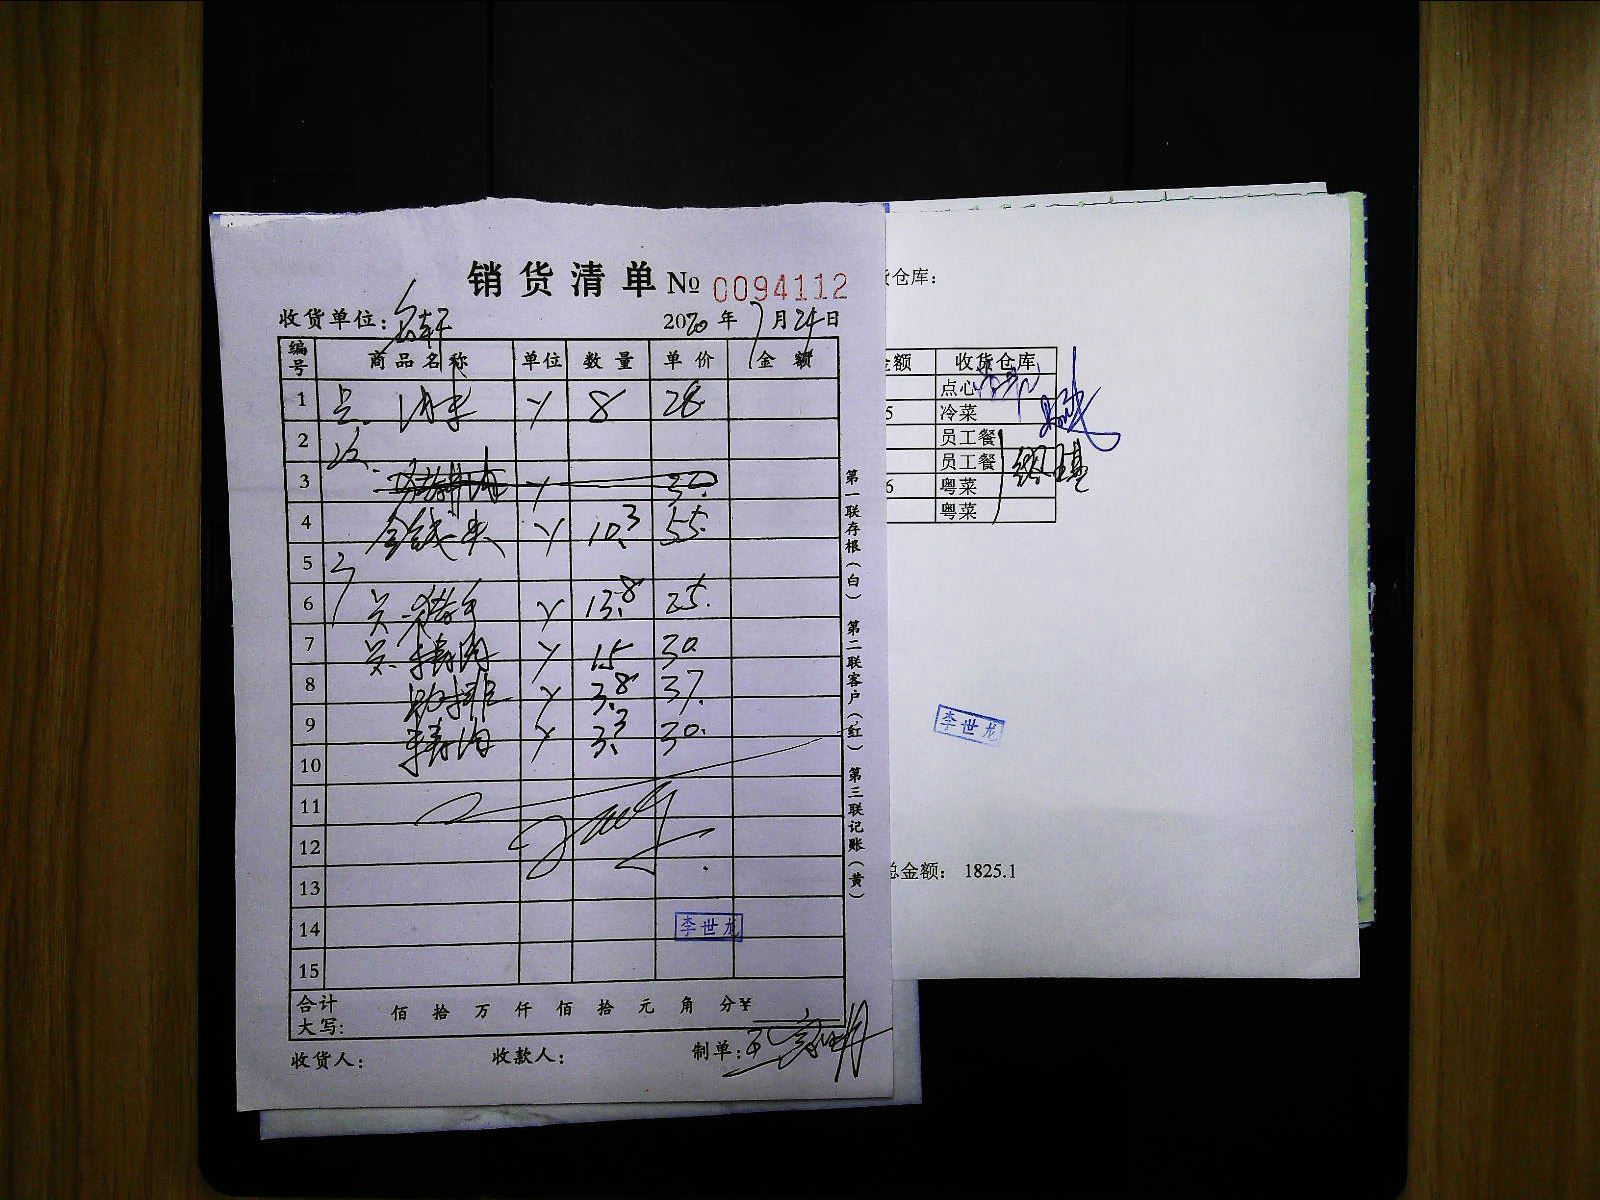 销货清单 № 0094112
收货单位：名轩 2020年7月24日
编号 商品名称 单位 数量 单价 金额
1 点 肉末 丫 8 28
2
3 丫 37.
4 丫 10.3 55.
5
6 丫 13.8 25.
7 员 精肉 丫 15 30
8 肋排 丫 3.8 37.
9 精肉 丫 3.3 30.
10
11
12
13
14 李世龙
15
合计大写： 佰 拾 万 仟 佰 拾 元 角 分¥
收货人： 收款人： 制单：
第一联存根（白） 第二联客户（红） 第三联记账（黄）
货仓库：
金额 收货仓库
点心
5 冷菜
员工餐
员工餐
6 粤菜
粤菜
李世龙
总金额： 1825.1